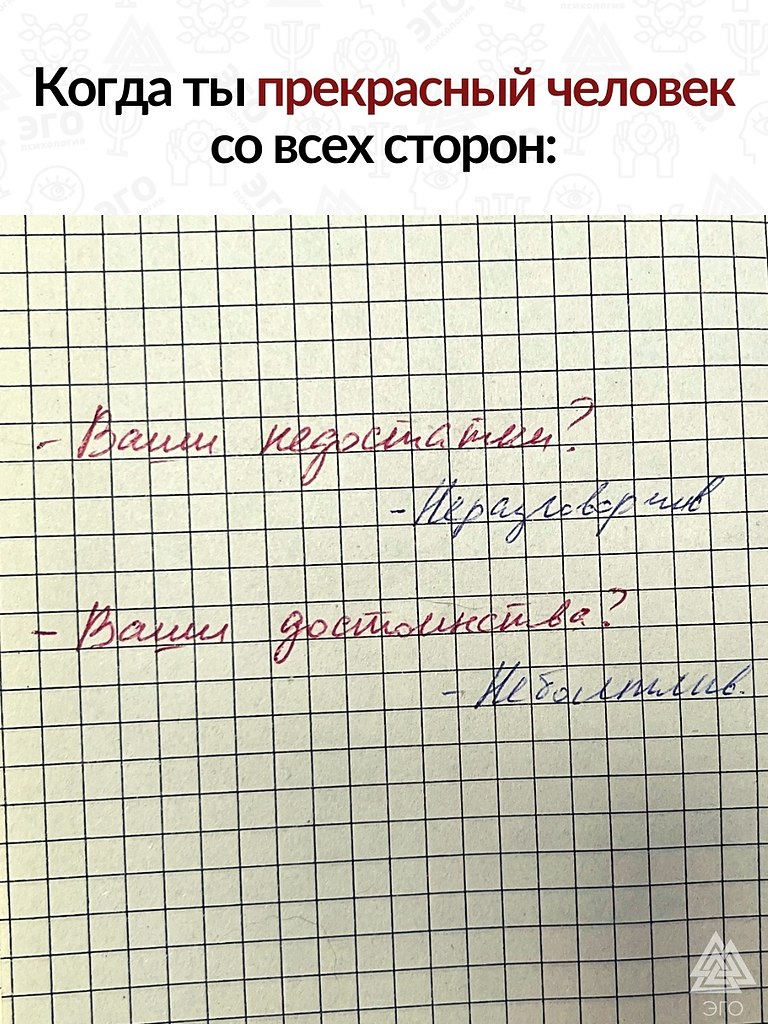 Когда ты прекрасный человек
со всех сторон:
- Ваши недостатки?
- Неразговорчив
- Ваши достоинства?
- Неболтлив.
ЭГО